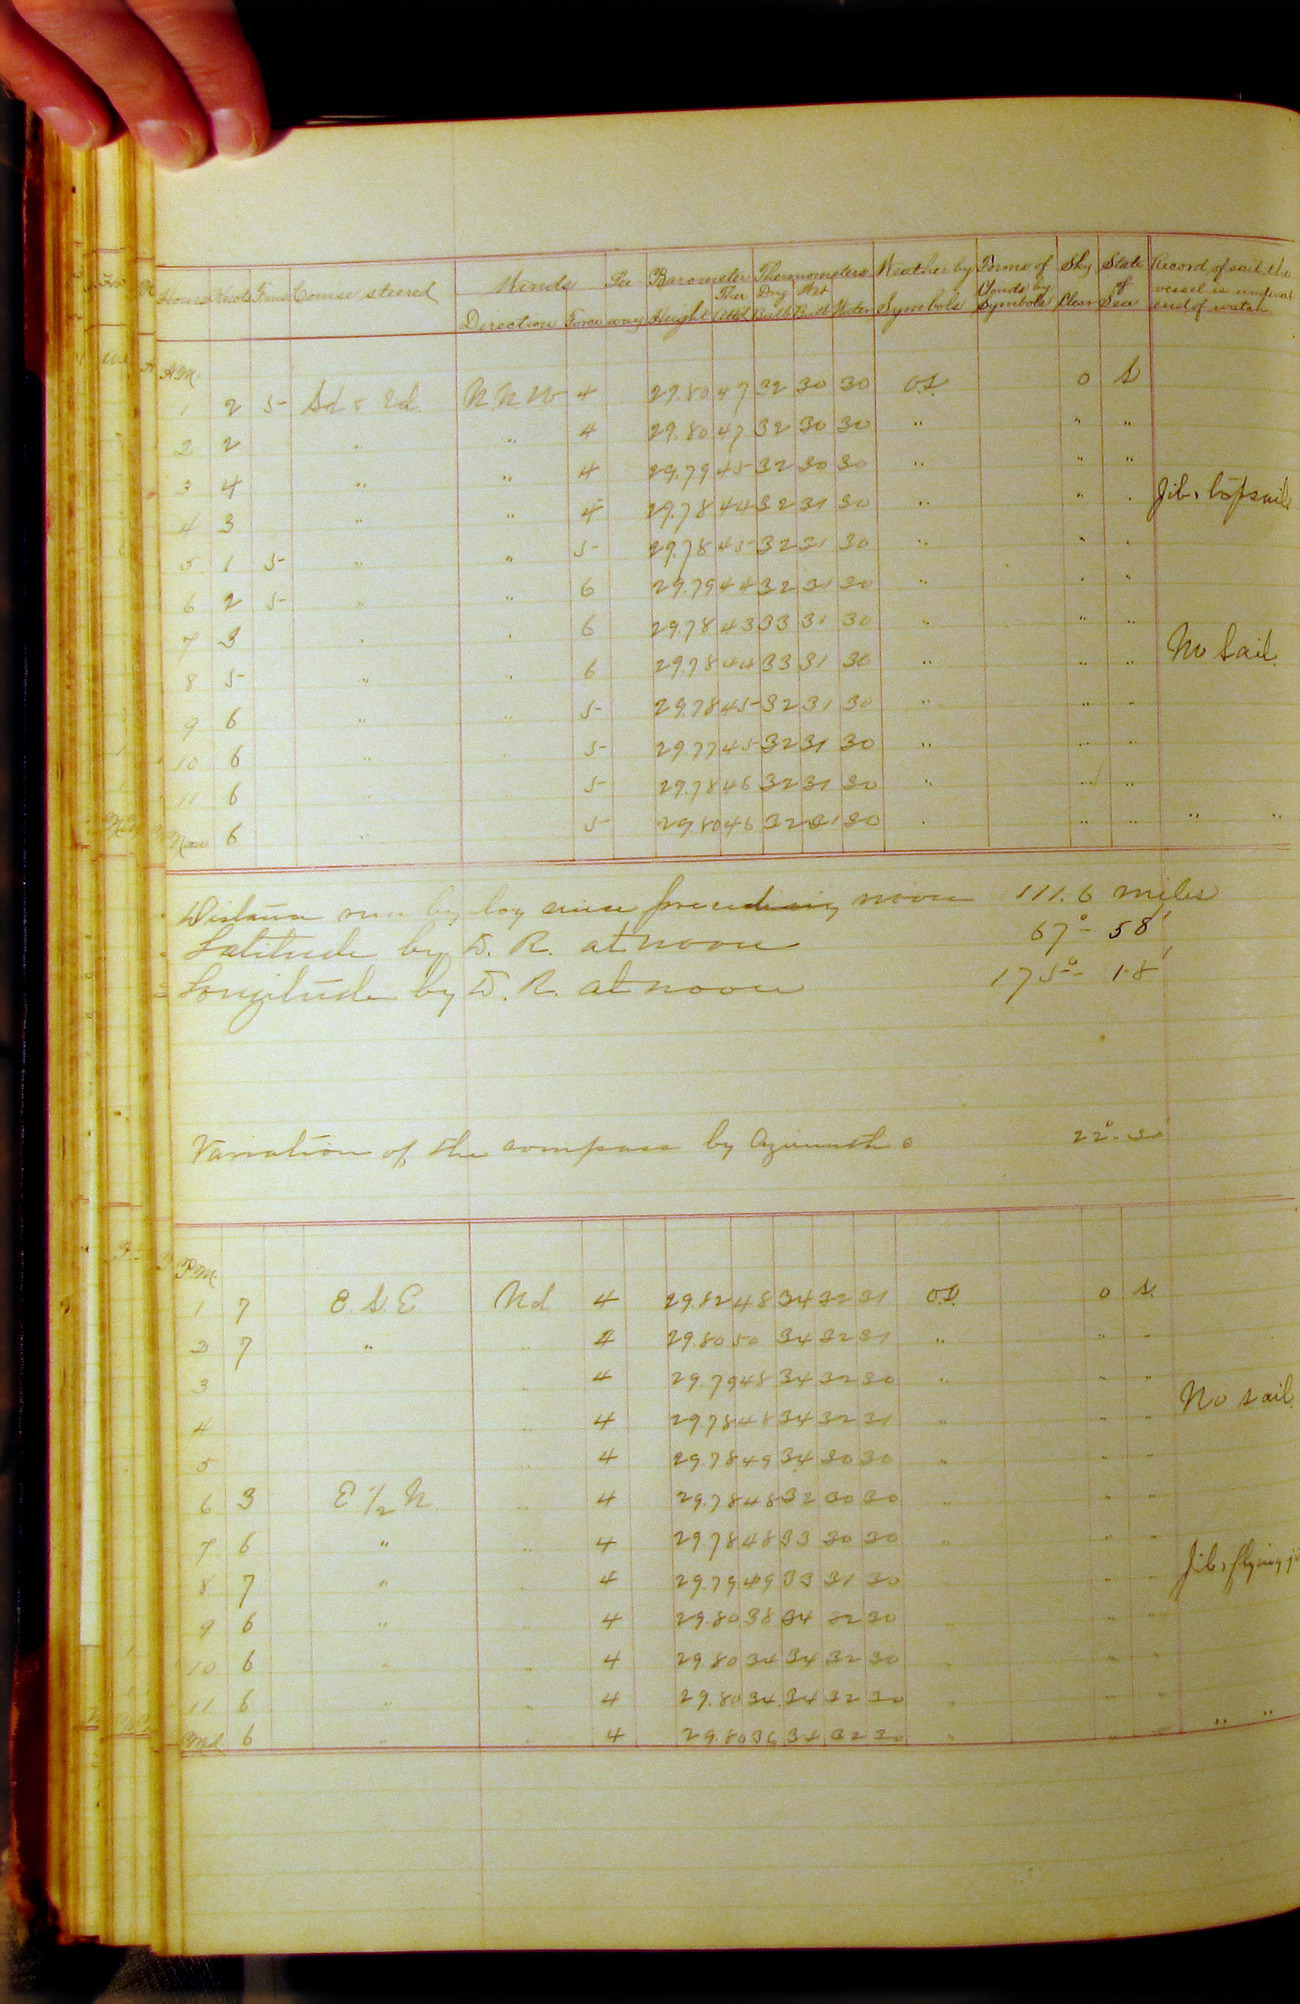 Hours Knots Fms Course steered Winds Lee- Barometer Thermometers Weather by Forms of Sky State Record of sail the
Ther Dry Wet Clouds by of vessel is under at
Direction Force way Height Attd Bulb Bulb Water Symbols Symbols Clear Sea end of watch
A.M.
1 2 5 N.N.W 4 29.80 47 32 30 30 O.S. 0 S
2 2 " " 4 29.80 47 32 30 30 " " "
3 4 " " 4 29.79 45 32 30 30 " " "
Jib & topsail
4 3 " " 4 29.78 44 32 31 30 " " "
5 1 5 " " 5 29.78 45 32 31 30 " " "
6 2 5 " " 6 29.79 44 32 31 30 " " "
7 3 " " 6 29.78 43 33 31 30 " " "
No Sail
8 5 " " 6 29.78 44 33 31 30 " " "
9 6 " " 5 29.78 45 32 31 30 " " "
10 6 " 5 29.77 45 32 31 30 " " "
11 6 " 5 29.78 46 32 31 30 " " "
Noon 6 " 5 29.80 46 32 31 30 " " " " "
Distance run by log since preceding noon 111.6 miles
Latitude by D. R. at noon 67° - 58'
Longitude by D. R. at noon 175° - 18'
Variation of the compass by Azimuth 22° - 30'
P.M.
1 7 E.S.E Nd 4 29.82 48 34 32 31 O.S. 0 S.
2 7 " " 4 29.80 50 34 32 31 " " "
3 " 4 29.79 48 34 32 30 " " "
No sail
4 " 4 29.78 48 34 32 31 " " "
5 " 4 29.78 49 34 30 30 " " "
6 3 E 1/2 N. " 4 29.78 48 32 30 30 " " "
7 6 " " 4 29.78 48 33 30 30 " " "
Jib, flying
8 7 " " 4 29.79 49 33 31 30 " " "
9 6 " " 4 29.80 38 34 32 30 " " "
10 6 " " 4 29.80 34 34 32 30 " " "
11 6 " " 4 29.80 34 34 32 30 " " "
Mid 6 " " 4 29.80 36 34 32 30 " " " " "